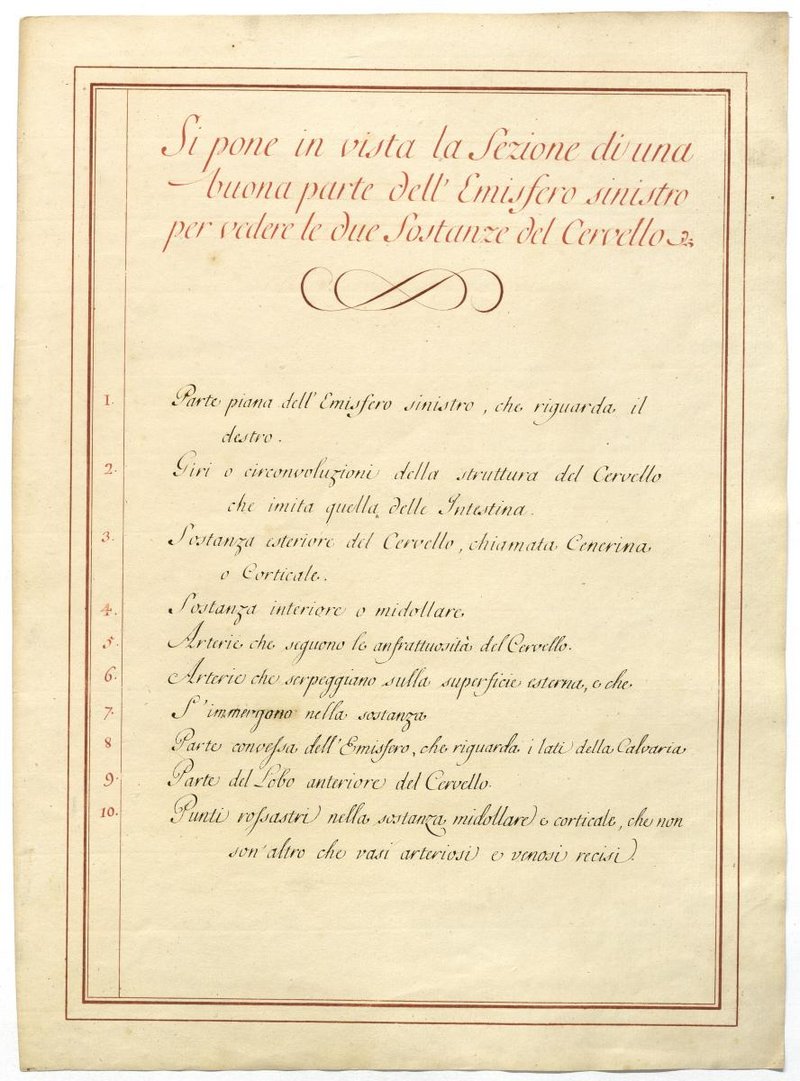 Si pone in vista la Sezione di una
buona parte dell' Emisfero sinistro
per vedere le due Sostanze del Cervello
1. Parte piana dell' Emisfero sinistro, che riguarda il
destro.
2. Giri o circonvoluzioni della struttura del Cervello
che imita quella delle Intestina.
3. Sostanza esteriore del Cervello, chiamata Cenerina
o Corticale.
4. Sostanza interiore o midollare
5. Arterie che seguono le anfrattuosità del Cervello.
6. Arterie che serpeggiano sulla superficie esterna, e che
7. S'immergono nella sostanza
8 Parte convessa dell' Emisfero, che riguarda i lati della Calvaria
9. Parte del Lobo anteriore del Cervello.
10. Punti rossastri nella sostanza midollare e corticale, che non
son' altro che vasi arteriosi e venosi recisi.